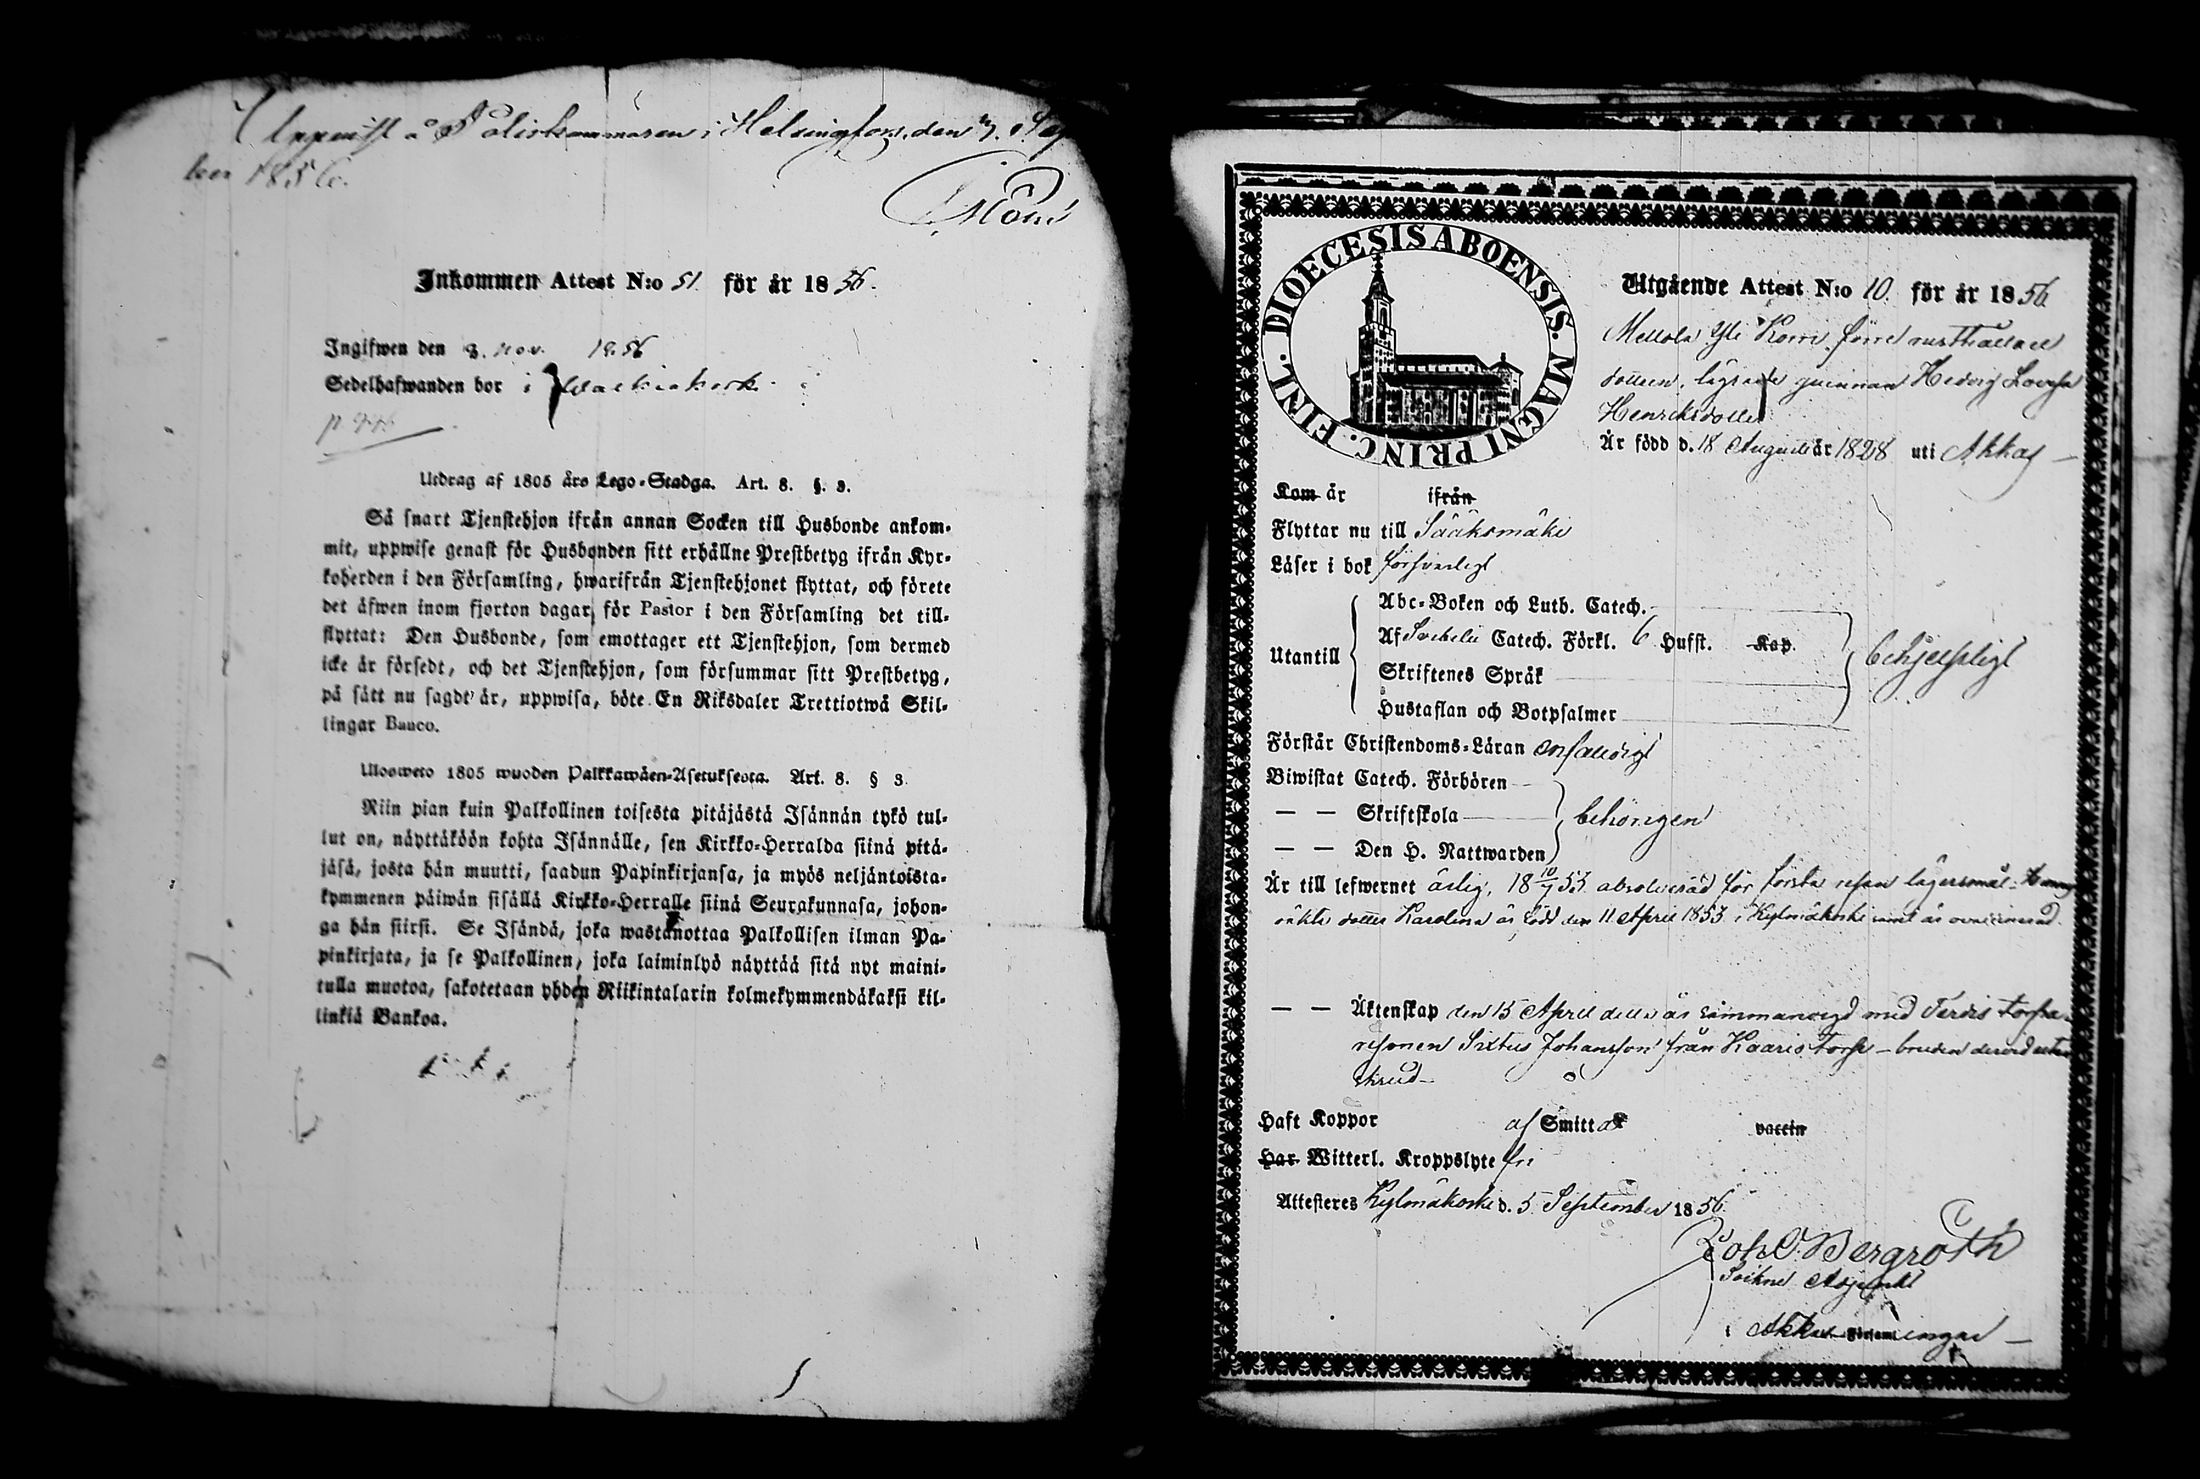 Uppvist å Poliskammaren i Helsingfors, den
ber 1856.
Inkommen Attest N:o 51 för år 1856.
Ingifwen den 3. nov. 1856
Sedelhafwanden bor i
Utdrag af 1805 års Lego-Stadga. Art. 8. §. 3.
Så snart Tjenstehjon ifrån annan Socken till Husbonde ankom-
mit, uppwise genast för Husbonden sitt erhållne Prestbetyg ifrån Kyr-
koherden i den Församling, hwarifrån Tjenstehjonet flyttat, och förete
det äfwen inom fjorton dagar, för Pastor i den Församling det till-
flyttat: Den Husbonde, som emottager ett Tjenstehjon, som dermed
icke är försedt, och det Tjenstehjon, som försummar sitt Prestbetyg,
på sätt nu sagdt är, uppwisa, böte En Riksdaler Trettiotwå Skil-
lingar Banco.
Ulosweto 1805 wuoden Palkkawäen-Asetuksesta. Art. 8. § 3.
Niin pian kuin Palkollinen toisesta pitäjästä Isännän tykö tul-
lut on, näyttäköön kohta Isännälle, sen Kirkko-Herralda siinä pitä-
jäsä, josta hän muutti, saadun Papinkirjansa, ja myös neljäntoista-
kymmenen päiwän sisällä Kirkko-Herralle siinä Seurakunnasa, johon-
ga hän siirsi. Se Isändä, joka wastanottaa Palkollisen ilman Pa-
pinkirjata, ja se Palkollinen, joka laiminlyö näyttää sitä nyt maini-
tulla muotoa, sakotetaan yhden Riikintalarin kolmekymmendäkaksi kil-
linkiä Bankoa.
FINL. DIOECESIS ABOENSIS. MAGNI PRINC.
Utgående Attest N:o 10. för år 1856
Mellola Yli Korri, förre rusthållare
dottren, lägrade qvinnan Hedvig Lovisa
Henriksdotter
Är född d. 18 Augusti år 1828 uti Akkas
Kom år ifrån
Flyttar nu till Sääksmäki
Läser i bok försvarligt
Abc-Boken och Luth. Catech.
Utantill
Af Svebelii Catech. Förkl. 6 Hufst. Kap.
behjelpligt
Skriftenes Språk
Hustaflan och Botpsalmer
Förstår Christendoms-Läran enfaldigt
Biwistat Catech. Förhören
— — Skriftskola
behörigen
— — Den H. Nattwarden
Är till lefwernet ärlig, 18 10/7 53 absolverad för första resan lägersmål.
oäkta dotter Karolina är född den 11 April 1853 i Kylmäkoski samt är ovaccinerad.
— — Äktenskap den 15 April detta år sammanvigd med
Sixtus Johansson från Kaaris Torp – bruden
skrud
Haft Koppor af Smitta vaccin
Har Witterl. Kroppslyte fri
Attesteres Kylmäkoski d. 5 September 1856.
Joh. O. Bergroth
Sockne Adjunkt
i Akkas Församlingar